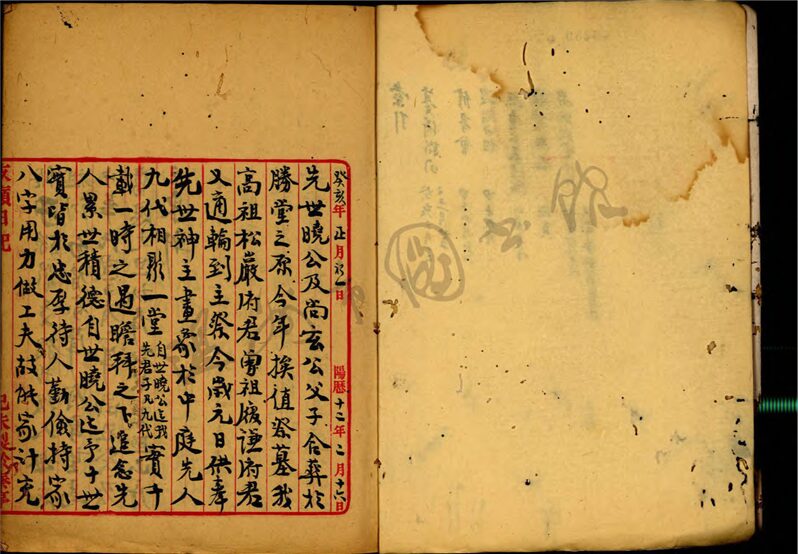 癸亥年正月初一日 陽曆十二年二月十六日
先世曉公及尚玄公父子合葬於
勝堂之原今年挨值祭墓我
高祖松嚴府君曾祖履謙府君
又適輪到主祭今歲元日供奉
先世神主畫象於中庭先人
九代相聚一堂自世曉公迄我先君子凡九代實千
載一時之遇瞻拜之下追念先
人累世積德自世曉公迄予十世
實皆於忠孝待人勤儉持家
八字用力做工夫故能家計充